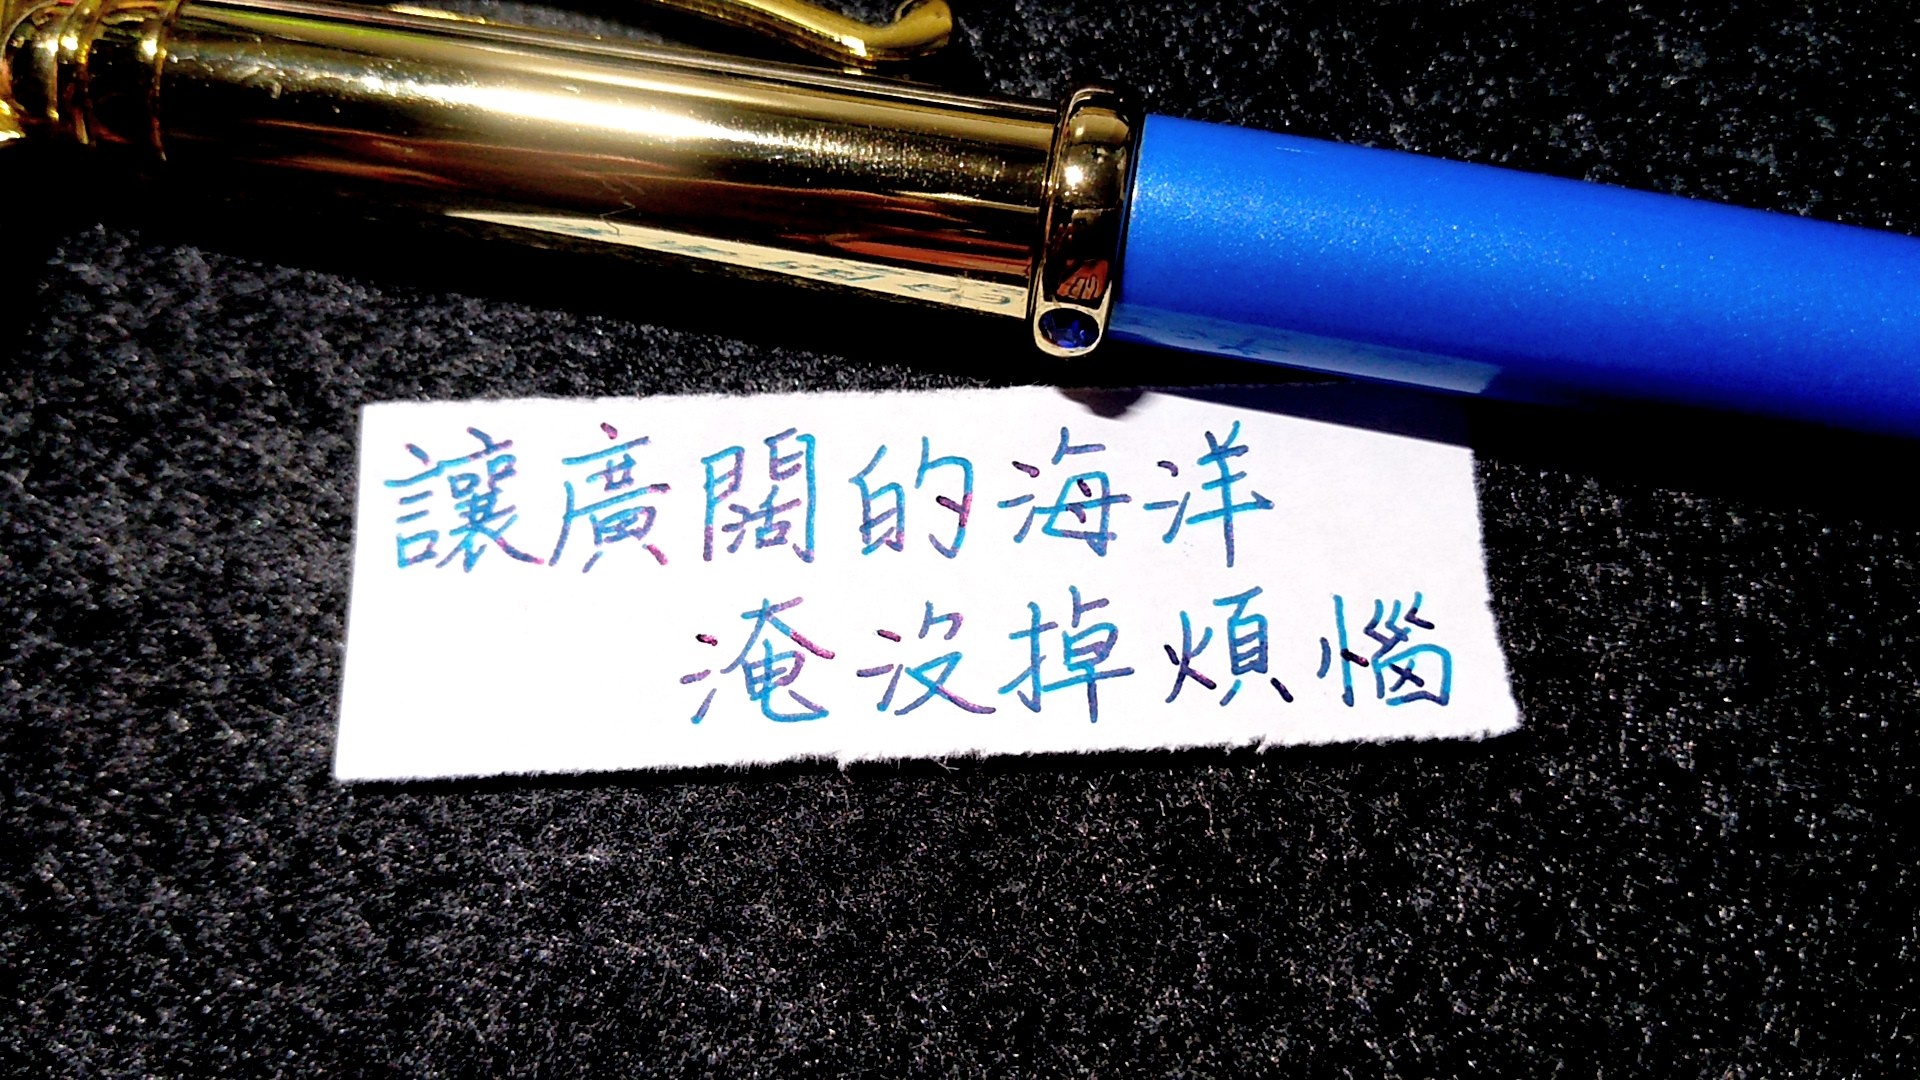 讓廣闊的海洋
淹沒掉煩惱